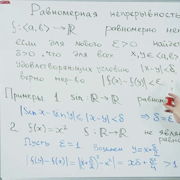 Равномерная непрерывность
f: <a,b> → ℝ равномерно не
если для любого ε>0 найдё
δ>0, что для всех x,y∈<a,b>
удовлетворяющих условию |x-y|<δ
верно нер-во |f(x)-f(y)|<ε
Примеры 1 sin: ℝ→ℝ равно
|sin x - sin y| ≤ |x-y|<δ ⇒ δ=ε
2 f(x)=x² f: ℝ→ℝ не явля
равно
Пусть ε=1 Возьмём y=x+δ/2
|f(y)-f(x)|=|(x+δ/2)²-x²|=xδ+δ²/4>1